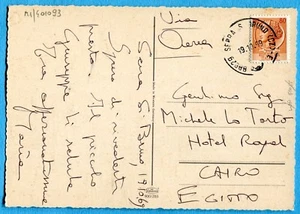 M/501093
Serra S. Bruno, 19/10/69
Spero di rivederti
presto. Il piccolo
Giuseppe ti saluta
Tua affezionatissima
Maria
Via
Aerea
SERRA S. BRUNO (CZ)
Gentilmo Sig.
Michele Lo Torto
Hotel Royal
CAIRO
EGITTO